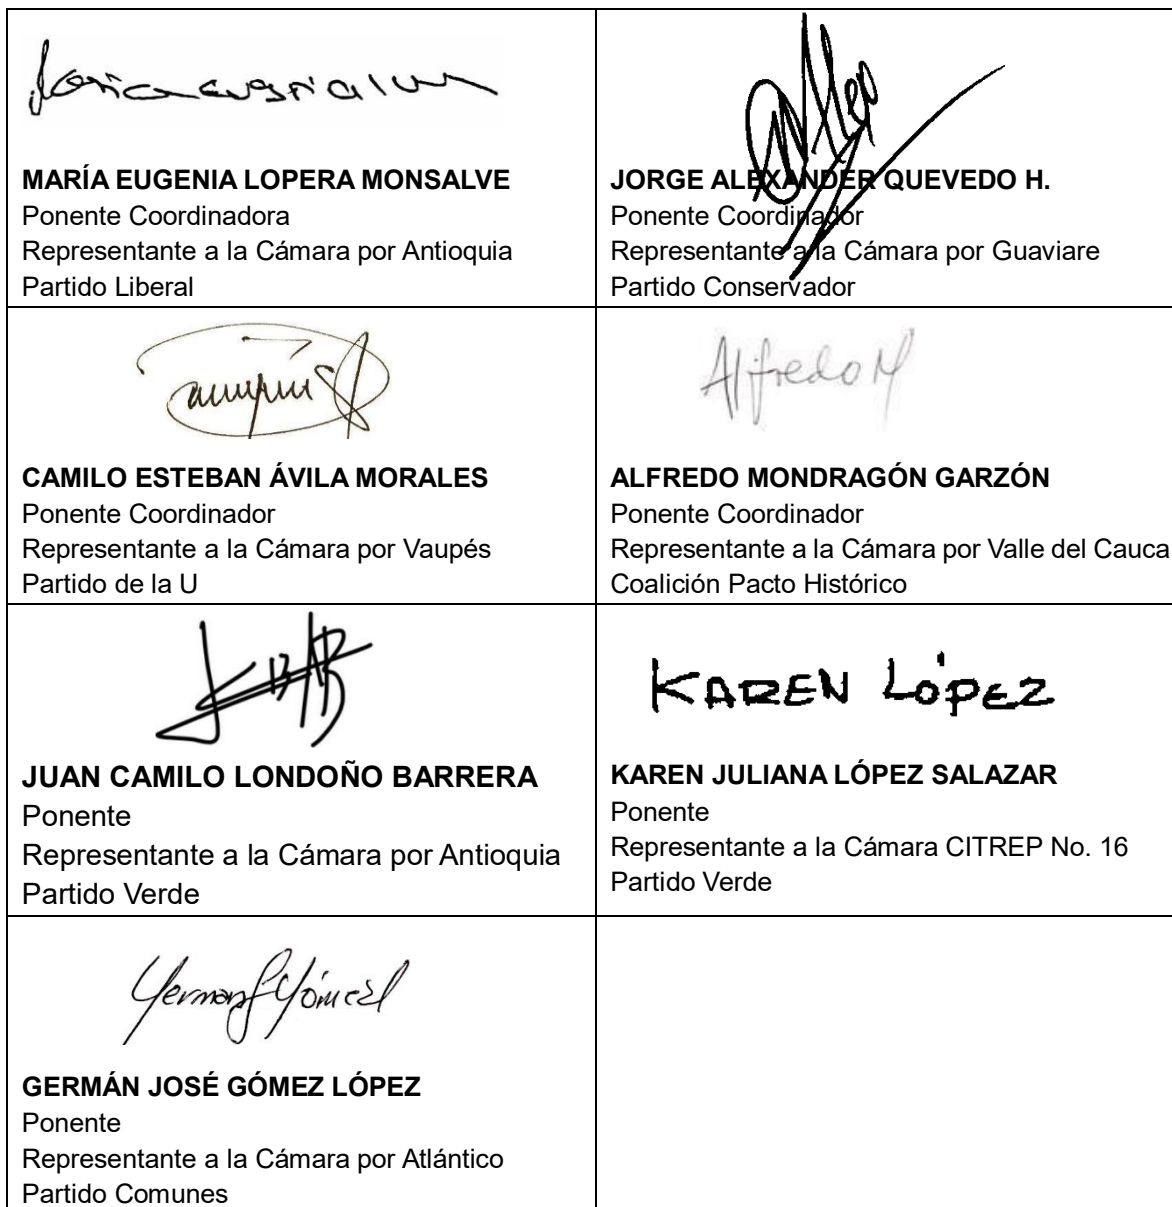 MARÍA EUGENIA LOPERA MONSALVE
Ponente Coordinadora
Representante a la Cámara por Antioquia
Partido Liberal
JORGE ALEXANDER QUEVEDO H.
Ponente Coordinador
Representante a la Cámara por Guaviare
Partido Conservador
CAMILO ESTEBAN ÁVILA MORALES
Ponente Coordinador
Representante a la Cámara por Vaupés
Partido de la U
Alfredo M
ALFREDO MONDRAGÓN GARZÓN
Ponente Coordinador
Representante a la Cámara por Valle del Cauca
Coalición Pacto Histórico
JUAN CAMILO LONDOÑO BARRERA
Ponente
Representante a la Cámara por Antioquia
Partido Verde
KAREN LóPEZ
KAREN JULIANA LÓPEZ SALAZAR
Ponente
Representante a la Cámara CITREP No. 16
Partido Verde
GERMÁN JOSÉ GÓMEZ LÓPEZ
Ponente
Representante a la Cámara por Atlántico
Partido Comunes